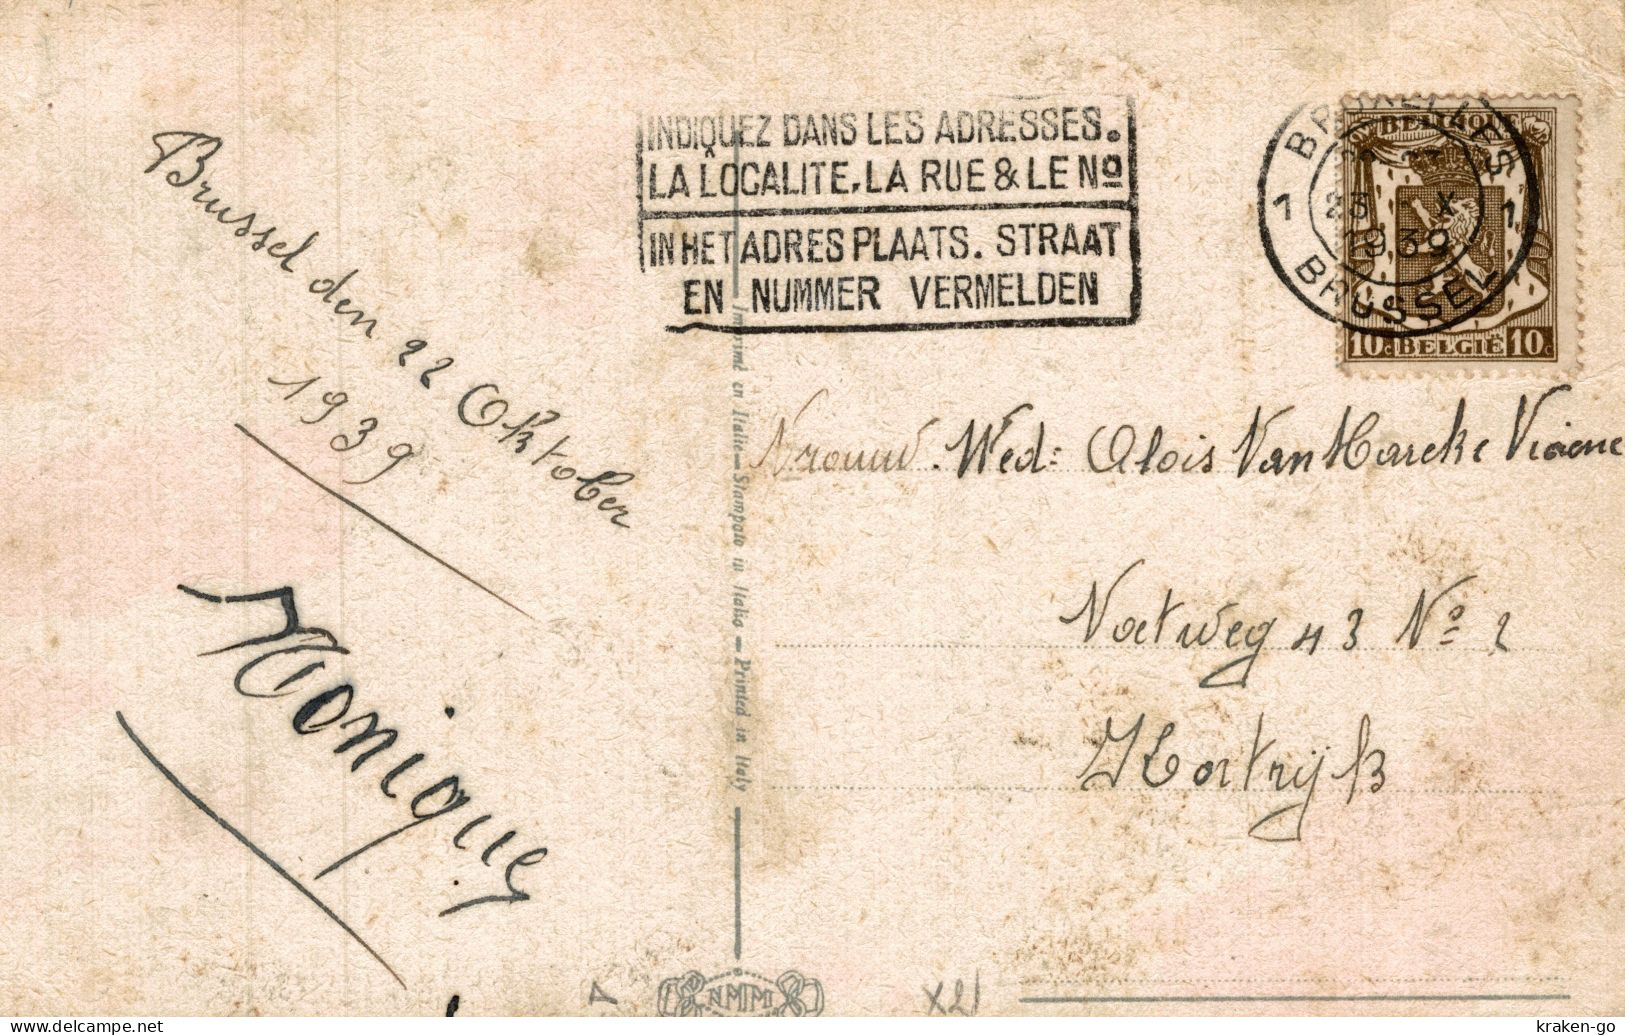 INDIQUEZ DANS LES ADRESSES.
LA LOCALITE, LA RUE & LE Nº
IN HET ADRES PLAATS. STRAAT
EN NUMMER VERMELDEN
BRUXELLES
1 23 X 1
1939
BRUSSEL
BELGIQUE
10c BELGIË 10c
Brussel den 22 Oktober
1939
Monique
Imprimé en Italie — Stampato in Italia — Printed in Italy
Vrouw. Wed: Alois Van Marcke Viaene
Voetweg 43 Nº 2
Kortrijk
NMM
X21
kraken-go